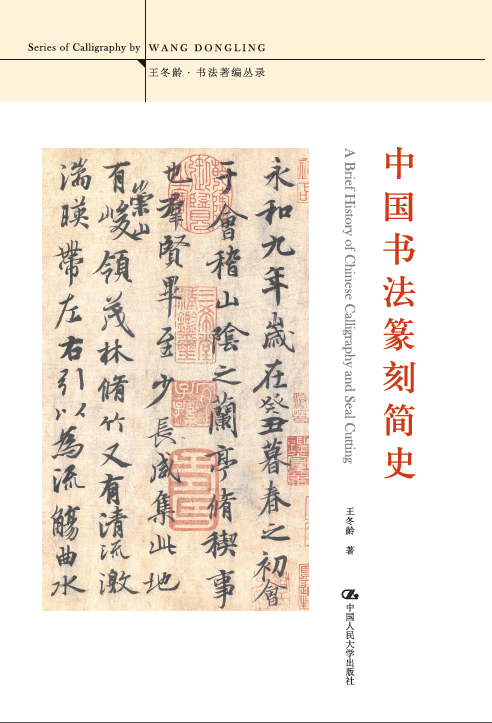 Series of Calligraphy by WANG DONGLING
王冬龄·书法著编丛录
中国书法篆刻简史
A Brief History of Chinese Calligraphy and Seal Cutting
王冬龄 著
中国人民大学出版社
永和九年歲在癸丑暮春之初會
于會稽山陰之蘭亭脩稧事
也羣賢畢至少長咸集此地
有崇山峻領茂林脩竹又有清流激
湍暎帶左右引以為流觴曲水